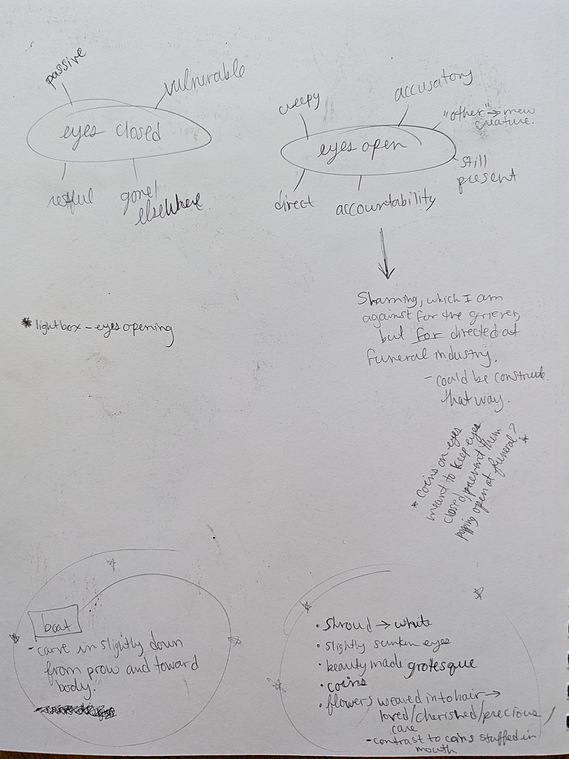 passive
vulnerable
eyes closed
restful
gone/
elsewhere
creepy
accusatory
"other" → new
creature.
eyes open
still
present
direct
accountability
* lightbox - eyes opening
Shaming, which I am
against for the griever,
but for directed at
funeral industry.
- could be construed
that way.
* coins on eyes
meant to keep eyes
closed/prevent them
popping open at funeral? *
boat
- carve in slightly down
from prow and toward
body.
• Shroud → white
• slightly sunken eyes
• beauty made grotesque
• coins
• flowers weaved into hair →
loved/cherished/precious/
care
- contrast to coins stuffed in
mouth